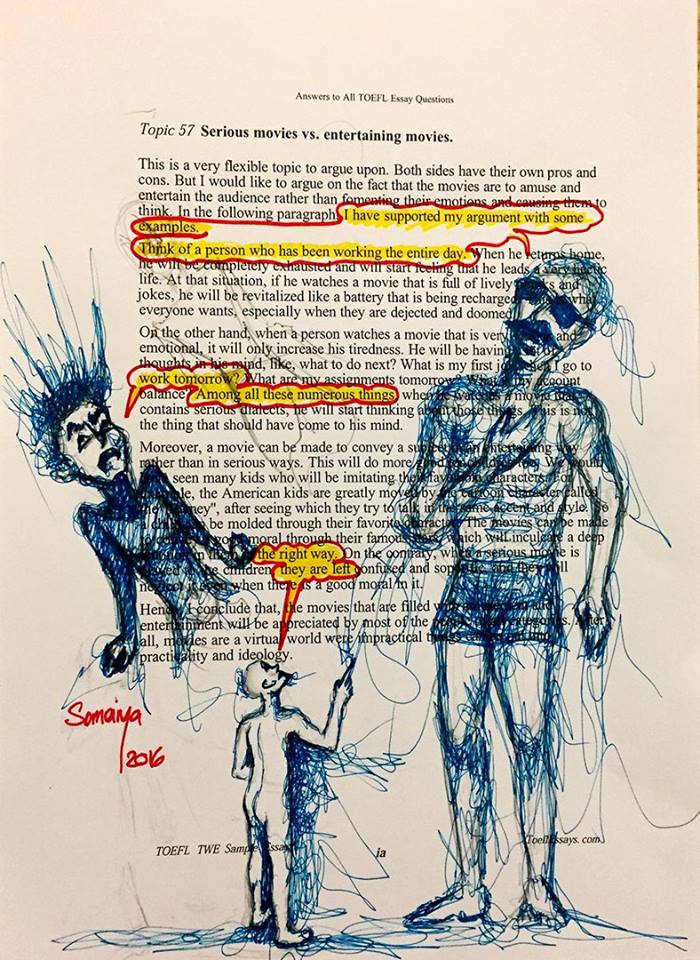 Answers to All TOEFL Essay Questions
Topic 57 Serious movies vs. entertaining movies.
This is a very flexible topic to argue upon. Both sides have their own pros and
cons. But I would like to argue on the fact that the movies are to amuse and
entertain the audience rather than fomenting their emotions and causing them to
think. In the following paragraph, I have supported my argument with some
examples.
Think of a person who has been working the entire day. When he returns home,
he will be completely exhausted and will start feeling that he leads a very hectic
life. At that situation, if he watches a movie that is full of lively and
jokes, he will be revitalized like a battery that is being recharged. what
everyone wants, especially when they are dejected and doomed
On the other hand, when a person watches a movie that is very and
emotional, it will only increase his tiredness. He will be having of
thoughts in his mind, like, what to do next? What is my first job when I go to
work tomorrow? What are my assignments tomorrow? What is my account
balance? Among all these numerous things when he watches a movie that
contains serious dialects, he will start thinking about those things. This is not
the thing that should have come to his mind.
Moreover, a movie can be made to convey a subject in an entertaining way
rather than in serious ways. This will do more good to children too. We would
have seen many kids who will be imitating their favorite characters. For
example, the American kids are greatly moved by the cartoon character called
", after seeing which they try to talk in the same accent and style. So
a child can be molded through their favorite character. The movies can be made
to moral through their famous which will inculcate a deep
in the right way. On the contrary, when a serious movie is
children, they are left confused and and they will
it even when there is a good moral in it.
Hence, I conclude that, the movies that are filled with and
entertainment will be appreciated by most of the people of all categories. After
all, movies are a virtual world were impractical things
practicality and ideology.
Somaiya
2016
TOEFL TWE Sample Essays ia ToeflEssays.com